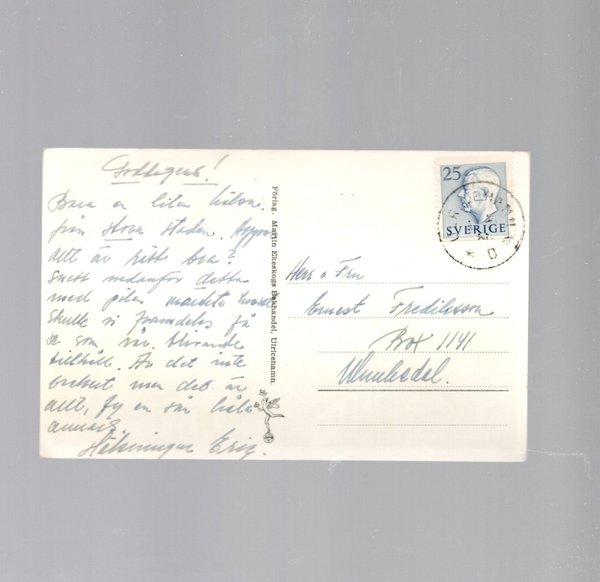 Goddagens!
Bara en liten hälsn.
från stora staden. Hoppas
allt är rätt bra?
Snett nedanför detta
med pilen
skulle vi framdeles få
se som vår blivande
tillhåll. Av det inte
enbart men det är
allt, fy en sån håla
annars.
Hälsningar Eric.
Förlag. Martin Ekeskogs Bokhandel, Ulricehamn.
25
SVERIGE
Herr o Fru
Ernest Fredriksson
Box 1141